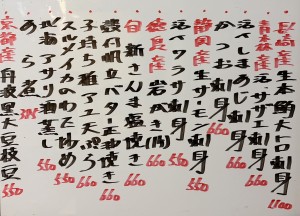 長崎産 生本鮪大トロ刺身 1100
青森産 活サザエ刺身
活〆しまあじ刺身
かつお刺身 660
静岡産 生サーモン刺身 550
活イワラ刺身 660
徳島産 岩がき 660
旬 新さんま塩焼き 660
殻付帆立バター正油焼き 660
子持ち稚アユ天ぷら 660
スルメイカのわた炒め 550
アサリ酒蒸し 550
あら煮
京都産 丹波黒大豆枝豆 550